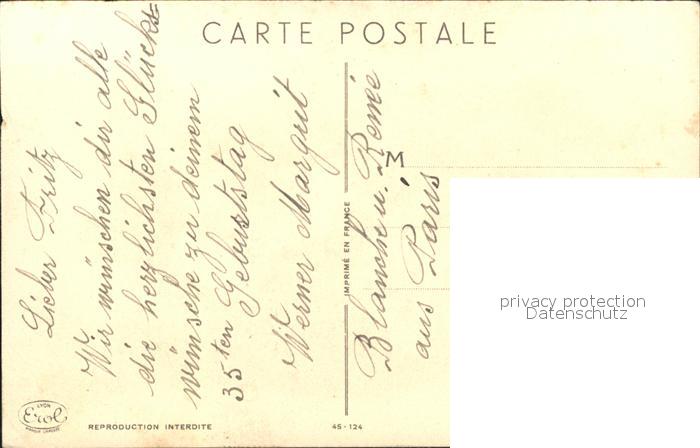 CARTE POSTALE
Lieber Fritz
Wir wünschen dir alle
die herzlichsten Glück=
wünsche zu deinem
35ten Geburtstag
Werner Margrit
Blanche u. Renée
aus Paris
M
IMPRIMÉ EN FRANCE
LYON
Erol
REPRODUCTION INTERDITE
45-124
privacy protection
Datenschutz